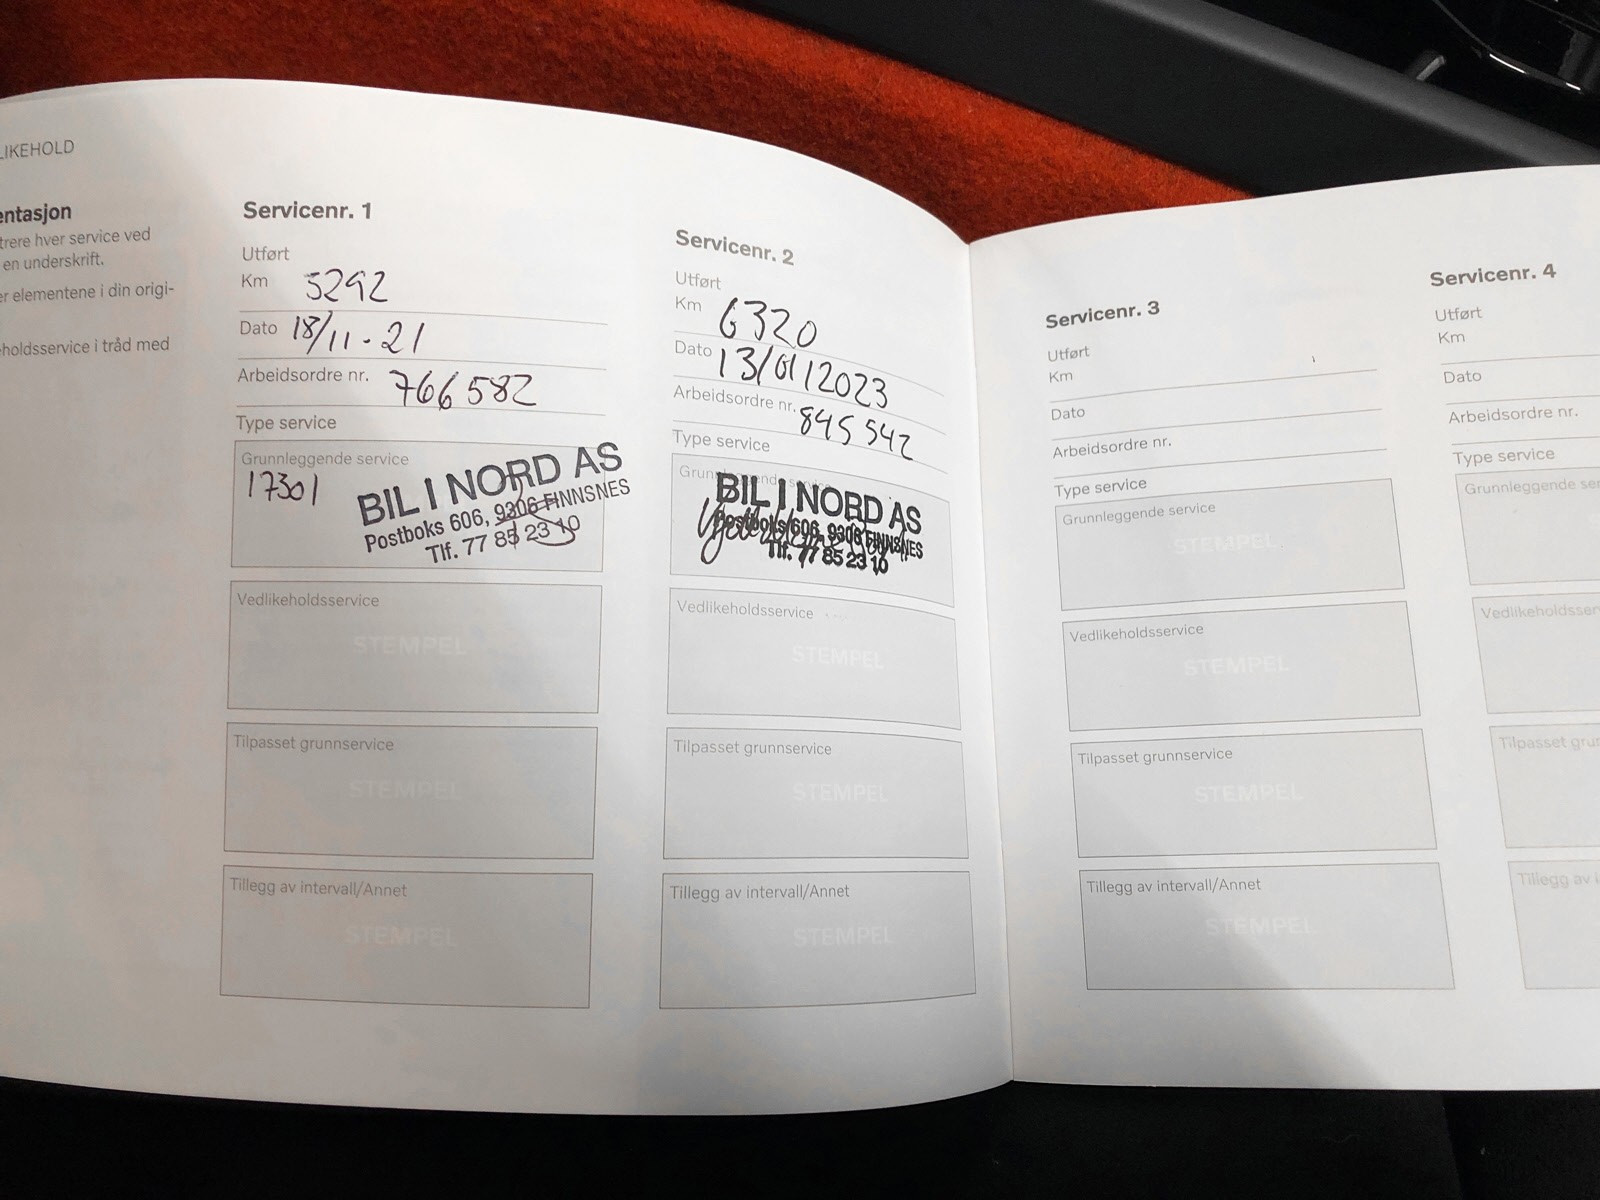 LIKEHOLD
entasjon
trere hver service ved
en underskrift.
er elementene i din origi-
eholdsservice i tråd med
Servicenr. 1
Utført
Km 5292
Dato 18/11-21
Arbeidsordre nr. 766582
Type service
Grunnleggende service
17301
BIL I NORD AS
Postboks 606, 9306 FINNSNES
Tlf. 77 85 23 10
Vedlikeholdsservice
STEMPEL
Tilpasset grunnservice
STEMPEL
Tillegg av intervall/Annet
STEMPEL
Servicenr. 2
Utført
Km 6320
Dato 13/01/2023
Arbeidsordre nr. 845542
Type service
Grunnleggende service
BIL I NORD AS
Postboks 606, 9306 FINNSNES
Tlf. 77 85 23 10
Vedlikeholdsservice
STEMPEL
Tilpasset grunnservice
STEMPEL
Tillegg av intervall/Annet
STEMPEL
Servicenr. 3
Utført
Km
Dato
Arbeidsordre nr.
Type service
Grunnleggende service
STEMPEL
Vedlikeholdsservice
STEMPEL
Tilpasset grunnservice
STEMPEL
Tillegg av intervall/Annet
STEMPEL
Servicenr. 4
Utført
Km
Dato
Arbeidsordre nr.
Type service
Grunnleggende se
Vedlikeholdsser
Tilpasset grun
Tillegg av i